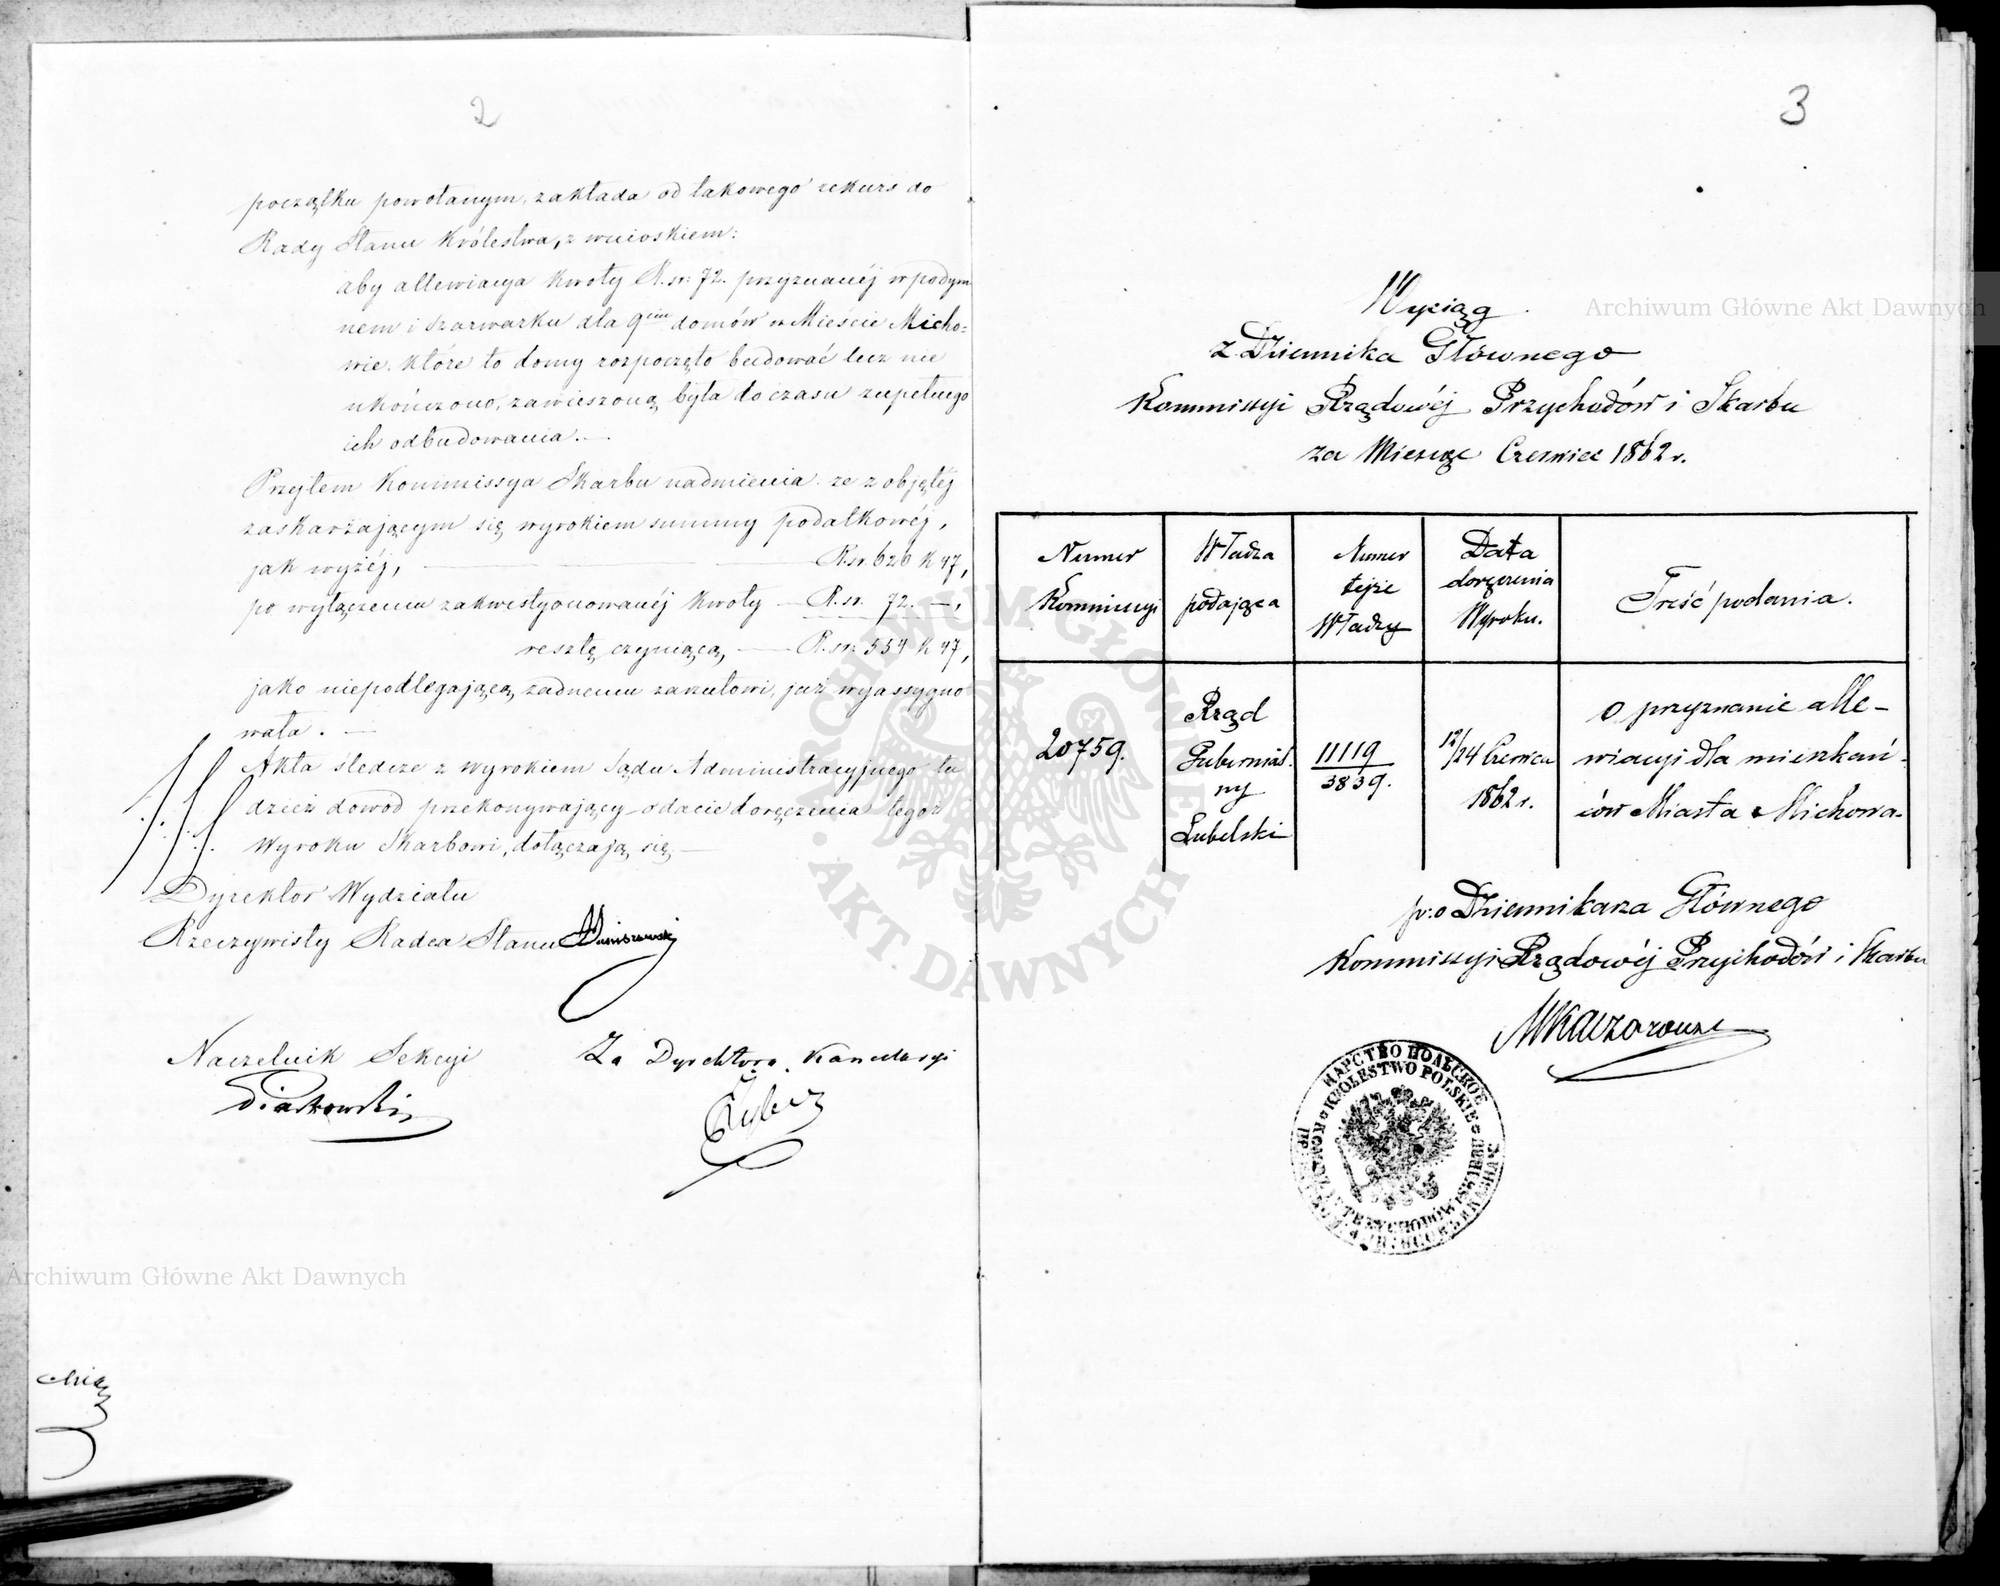 2
początku powołanym, zakłada od takowego rekurs do
Rady Stanu Królestwa, z wnioskiem:
aby allewiacya kwoty R.sr. 72. przyznanéj w podym
nem i szarwarku dla 9ciu domów w Mieście Micho-
wie, które to domy rozpoczęto budować lecz nie
ukończono, zawieszoną była do czasu zupełnego
ich odbudowania. —
Przytem Kommissya Skarbu nadmienia że z objętéj
zaskarżającym się wyrokiem summy podatkowéj,
jak wyżéj, — R.sr. 626 k 47,
po wyłączeniu zakwestyonowanéj kwoty — R.sr. 72. —,
resztę czyniącą, — R.sr. 554 k 47,
jako niepodlegającą żadnemu zarzutowi, już wyassygno
wała. —
Akta śledcze z wyrokiem Sądu Administracyjnego tu
dzież dowód przekonywający o dacie doręczenia tegoż
Wyroku Skarbowi, dołączają się. —
Dyrektor Wydziału
Rzeczywisty Radca Stanu
Naczelnik Sekcyi
Piaskowski
Za Dyrektora Kancellaryi
3
Wyciąg
z Dziennika Głównego
Kommissyi Rządowéj Przychodów i Skarbu
za Miesiąc Czerwiec 1862 r.
Numer Kommissyi
Władza podająca
Numer tejże Władzy
Data doręczenia Wyroku.
Treść podania.
20759.
Rząd Gubernial. ny Lubelski
11119
3839.
12/24 Czerwca 1862 r.
O przyznanie alle-
wiacyi dla mieszkań-
ców Miasta Michowa.
p.o Dziennikarza Głównego
Kommissyi Rządowéj Przychodów i Skarbu
MKaczorowsk
ЦАРСТВО ПОЛЬСКОЕ
KRÓLESTWO POLSKIE
PRZYCHODÓW I SKARBU
Archiwum Główne Akt Dawnych
Archiwum Główne Akt Dawnych
ARCHIWUM GŁÓWNE
AKT DAWNYCH